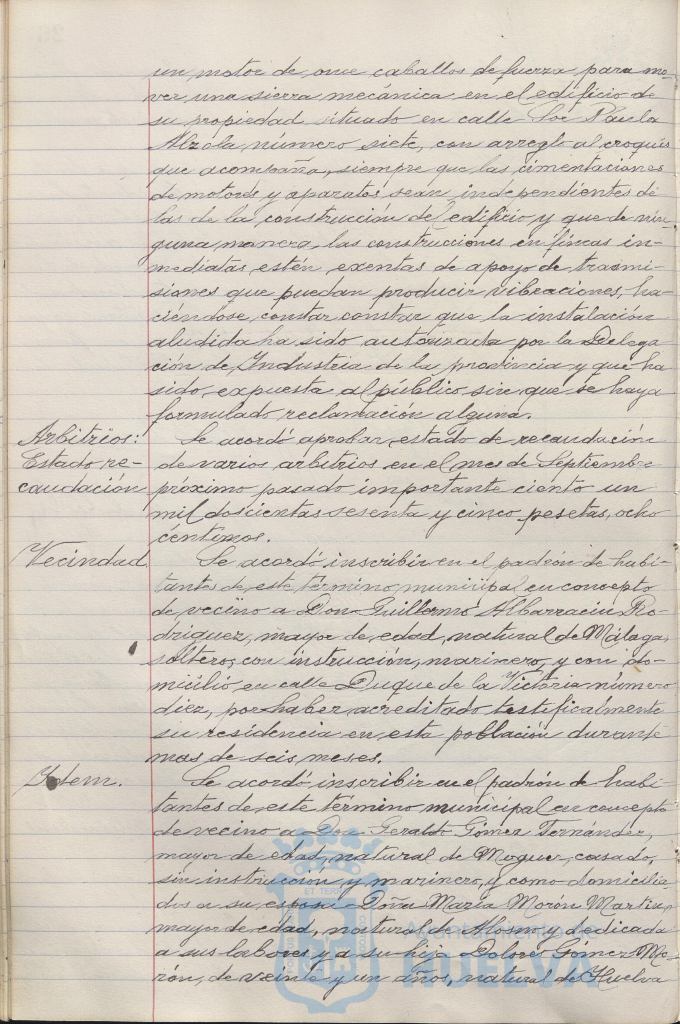 un motor de once caballos de fuerza para mo-
ver una sierra mecánica en el edificio de
su propiedad situado en calle Sor Paula
Alzola número siete, con arreglo al croquis
que acompaña, siempre que las cimentaciones
de motores y aparatos sean independientes de
las de la construcción del edificio y que de nin-
guna manera, las construcciones en fincas in-
mediatas estén exentas de apoyo de trasmi-
siones que puedan producir vibraciones, ha-
ciéndose, constar constar que la instalación
aludida ha sido autorizada por la Delega-
ción de Industria de la provincia y que ha
sido expuesta al público sin que se haya
formulado reclamación alguna.
Arbitrios: Se acordó aprobar estado de recaudación
Estado re- de varios arbitrios en el mes de Septiembre
caudación próximo pasado importante ciento un
mil doscientas sesenta y cinco pesetas, ocho
centimos.
Vecindad Se acordó inscribir en el padrón de habi-
tantes de este término municipal en concepto
de vecino a Don Guillermo Albarracin Ro-
driguez, mayor de edad, natural de Málaga,
soltero, con instrucción, marinero, y con do-
micilio en calle Duque de la Victoria número
diez, por haber acreditado testificalmente
su residencia en esta población durante
mas de seis meses.
Idem. Se acordó inscribir en el padrón de habi-
tantes de este término municipal en concepto
de vecino a Don Geraldo Gómez Fernández,
mayor de edad, natural de Moguer, casado,
sin instrucción y marinero, y como domicilia-
dos a su esposa Doña María Morón Martin,
mayor de edad, natural de Alosno y dedicada
a sus labores y a su hija Dolores Gómez Mo-
rón, de veinte y un años, natural de Huelva
Ayuntamiento de
HUELVA